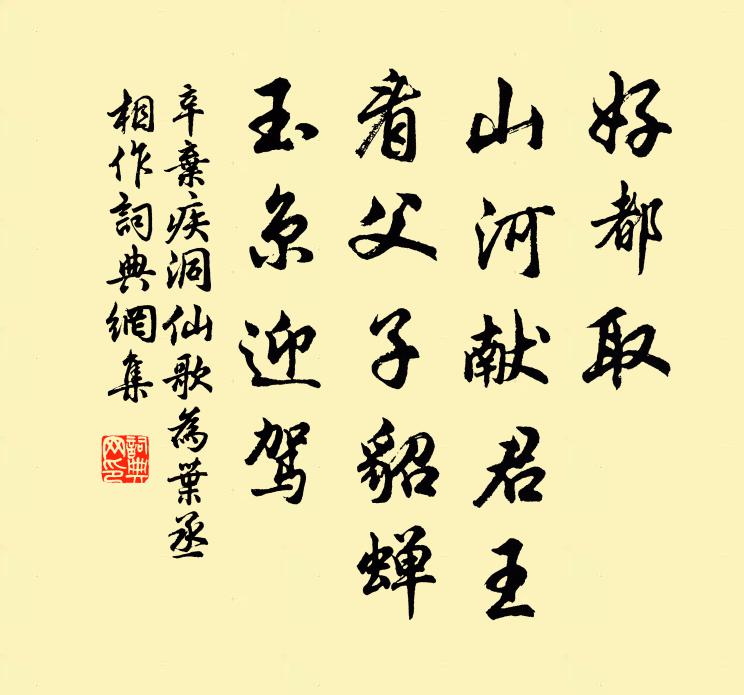 好都取
山河献君王
看父子貂蝉
玉京迎驾
辛棄疾洞仙歌為葉丞
相作詞典網集
詞典網印